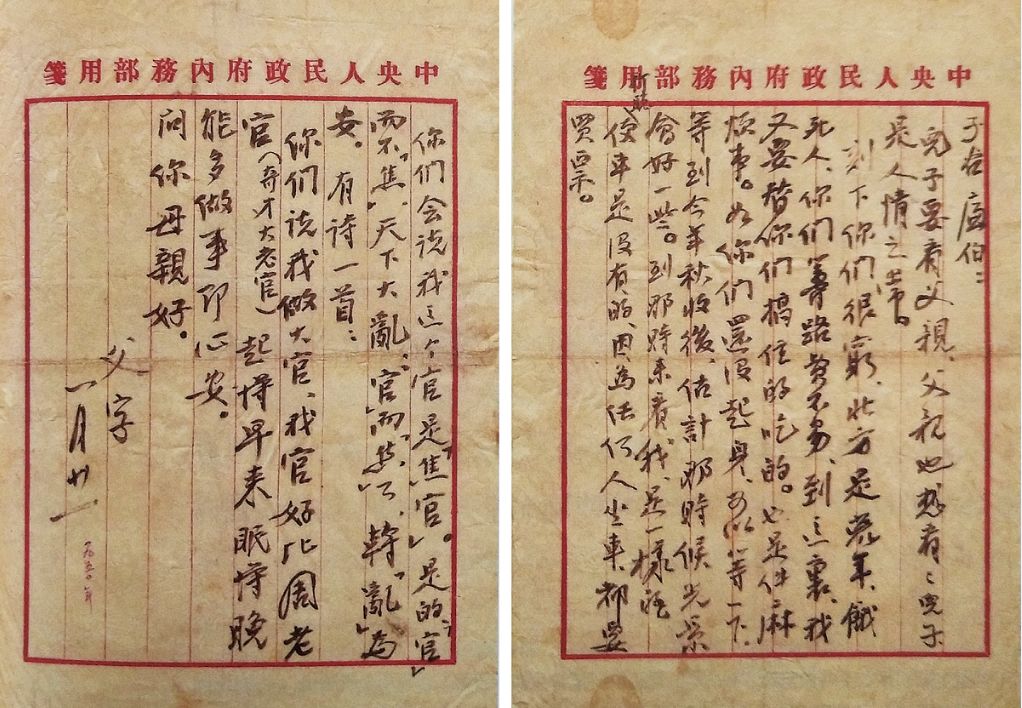 中央人民政府內務部用箋
子谷 廉伯：
兒子要看父親、父親也想看〻兒子
是人情之常。
刻下你们很窮、北方是荒年、餓
死人、你们籌路費不易、到這裏、我
又要替你们搞住的吃的。也是件麻
煩事。如你们還没起身、可以等一下、
等到今年秋收後、估計那時候光景
會好一些。到那時來看我、是一樣
便車是没有的、因為任何人坐車、都要
買票。
中央人民政府內務部用箋
你们会说我这个官是「焦官」。是的「官」
而不「焦」、天下大亂、「官」而「焦」了、轉「亂」為
安。有诗一首：
你们说我做大官、我官好比周老
官（奇才大老官）起得早来眠得晚
能多做事即心安。
问你母親好。
父字
一月廿一
一九五〇年